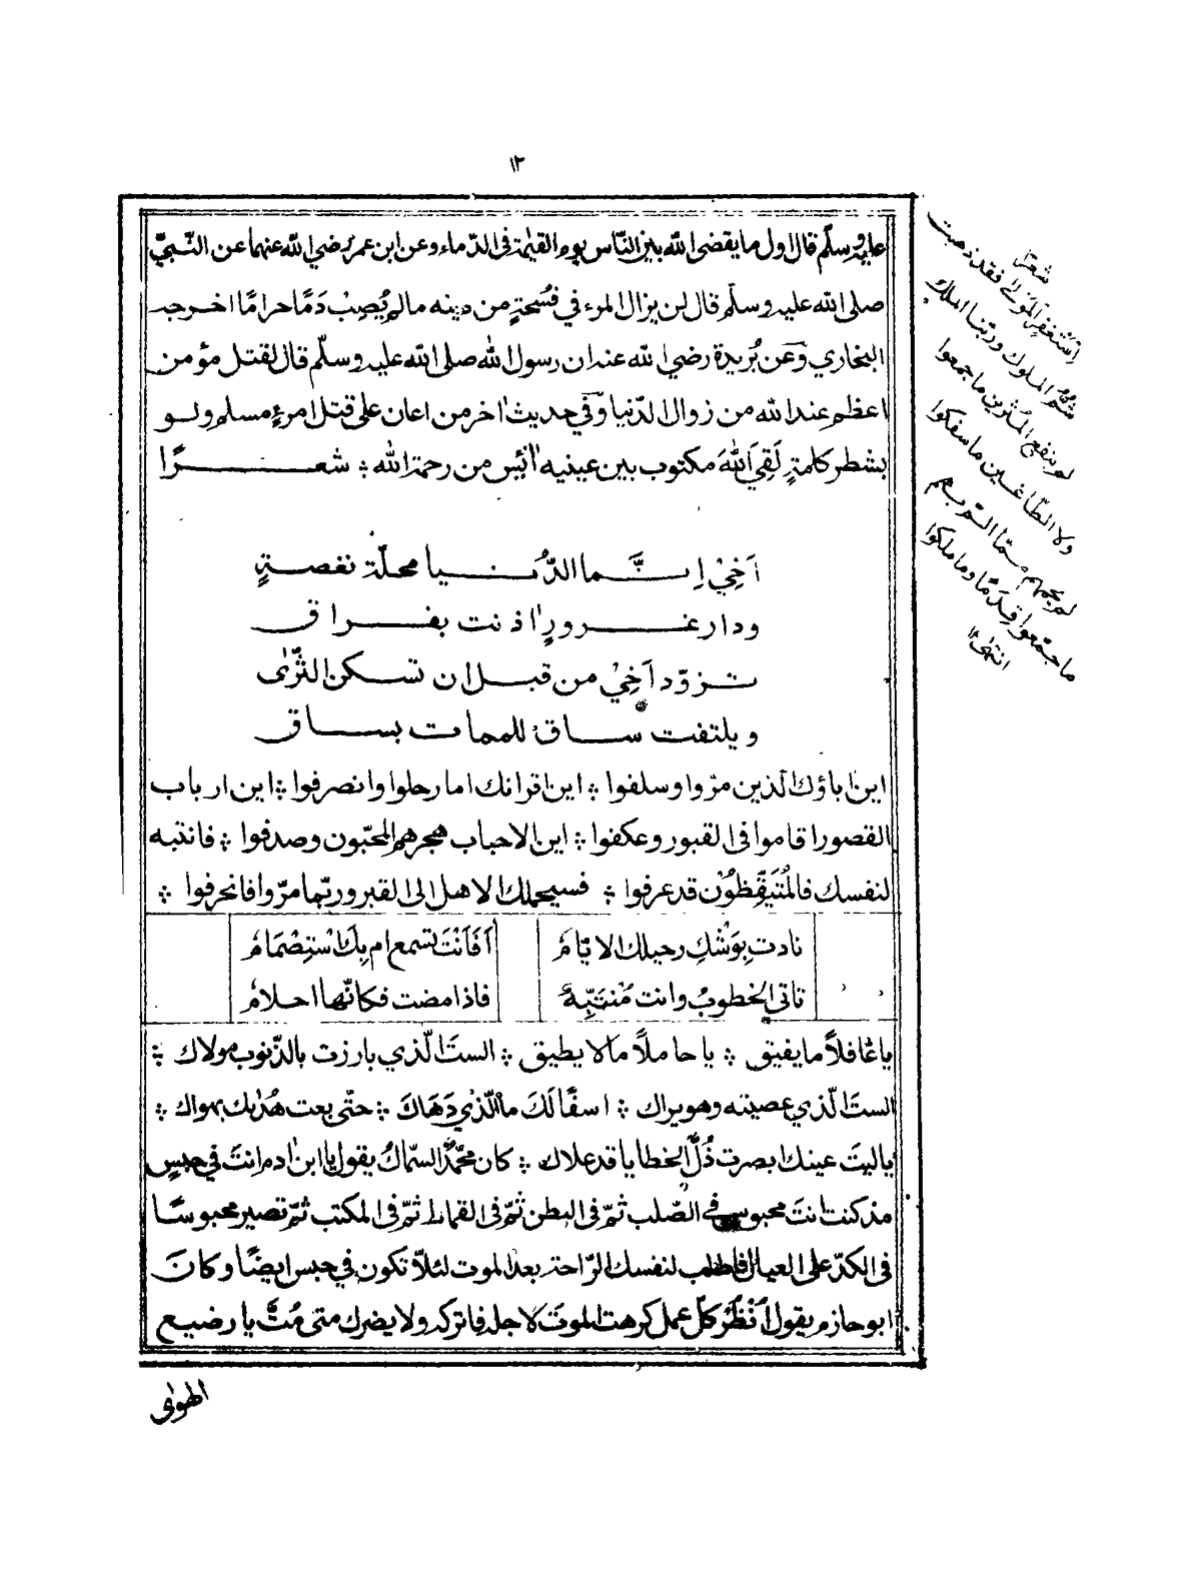 ١٢
عليه وسلّم قال اول ما يقضى الله بين النّاس يوم القيٰمة فى الدّماء وعن ابن عمر رضي الله عنهما عن النّبيّ
صلى الله عليه وسلّم قال لن يزال المرء في فُسْحةٍ من دينه مالم يُصِبْ دَمًا حرامًا اخرجه
البخاري وَعن بُريدة رضي الله عنه ان رسول الله صلى الله عليه وسلّم قال لقتل مؤمن
اعظم عند الله من زوال الدّنيا وَفي حديث اخر من اعان على قتل امرءٍ مسلم ولو
بشطر كلمةٍ لَقِيَ اللهَ مكتوب بين عينيه اٰئيس من رحمة الله ؞ شعرًا
اَخِيْ اِنَّما الدُّنيا محلّة نغصةٍ
ودار غرورٍ اٰذنت بفراق
تزوّد اَخِيْ من قبل ان تسكن الثّرٰى
ويلتفت ساق للممات بساق
اين اٰباؤك الّذين مرّوا وسلفوا ؞ اين اقرانك اما رحلوا وانصرفوا ؞ اين ارباب
القصور اقاموا فى القبور وعكفوا ؞ اين الاحباب هجرهم المحبّون وصدفوا ؞ فانتبه
لنفسك فالمُتَيَقِّظُوْن قد عرفوا ؞ فسيحملك الاهل الى القبر وربّما مرّوا فانحرفوا ؞
نادت بِوَشْكِ رحيلك الايّامُ اَفَاَنْتَ تسمع ام بِكَ اسْتِصْمَامُ
تاتى الخطوبُ وانت مُنْتَبِهٌ فاذا مضت فكانّها احلامُ
يا غافلاً ما يفيق ؞ يا حاملاً مالا يطيق ؞ الستَ الّذي بارزت بالذّنوب مولاك ؞
الستَ الّذي عصيته وهو يراك ؞ اسفًا لَكَ ما الّذي دَهَاكَ ؞ حتّى بعت هُدٰىك بهواك ؞
ياليتَ عينك ابصرت ذُلَّ الخطايا قد علاك ؞ كان محمّد السّماكُ يقول يا ابن اٰدم انتَ في حبسٍ
مذ كنت انتَ محبوس في الصّلب ثمّ فى البطن ثمّ فى القماط ثمّ فى المكتب ثمّ تصير محبوسًا
فى الكدّ على العيال فاطلب لنفسك الرّاحة بعد الموت لئلاّ تكون في حبس ايضًا وكانَ
ابو حازم يقول اُنْظُرْ كلّ عمل كرهت الموتَ لاجله فاتركه ولا يضرك متى مُتَّ يا رضيع
الهوٰى
شعر
اِسْتغفر المَوْلٰى فقد ذهبت
شُمُّ الملوك وربّنا الملك
لم ينفع المُثْرين ما جمعوا
ولا الطّاغين ما سفكوا
لم يحمهم ممّا المّ بهم
ما جمّعوا قِدَمًا وما ملكوا
انتهٰى ١٢